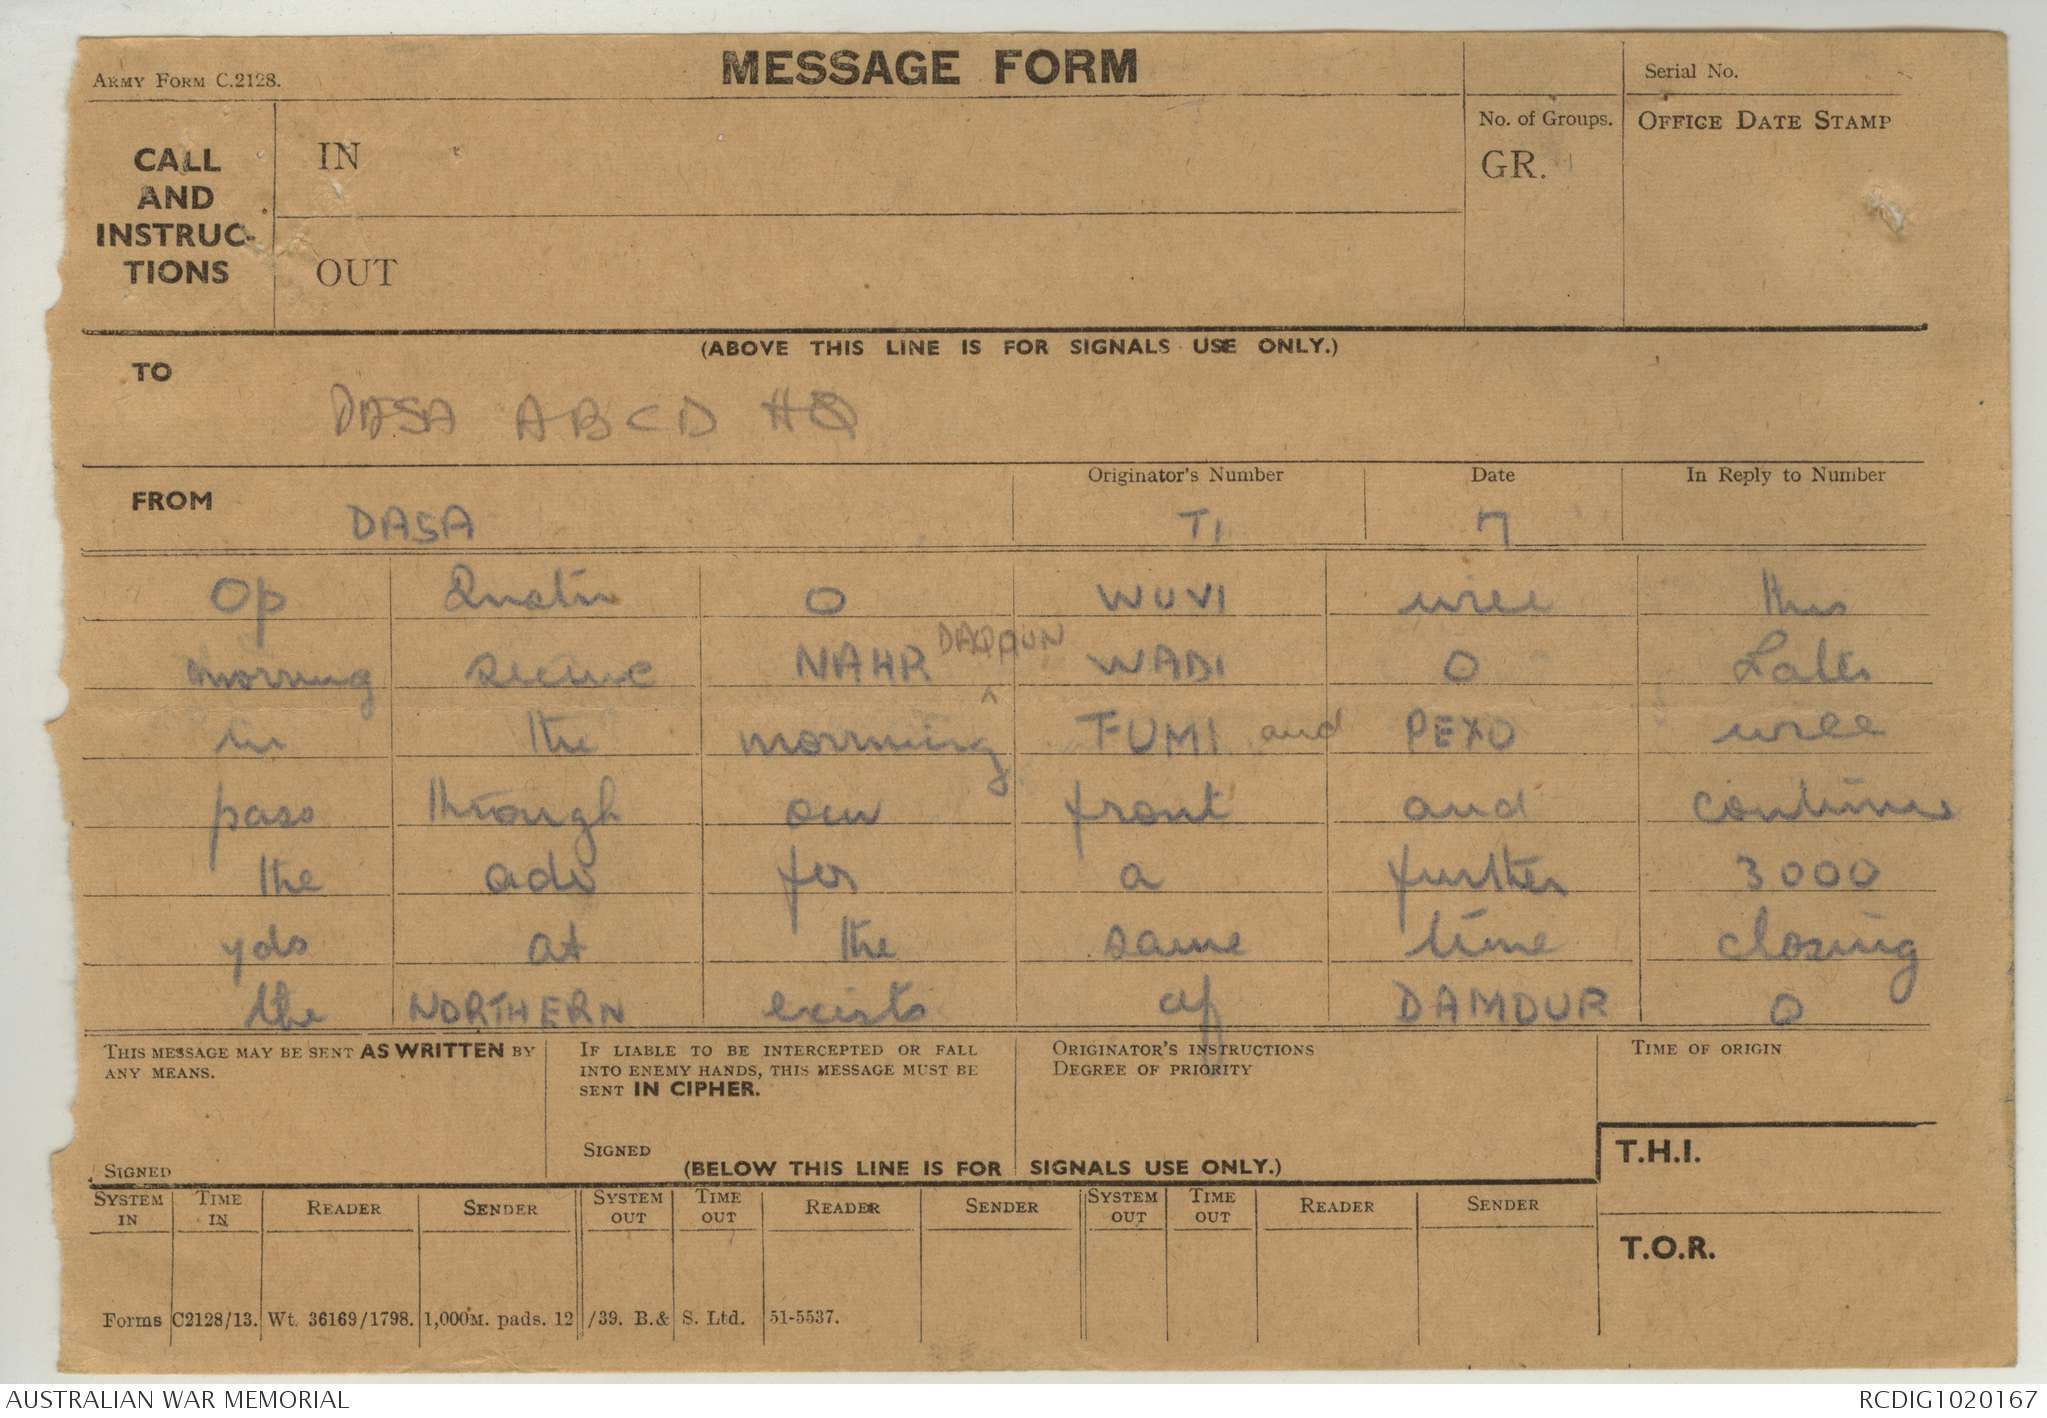 ARMY FORM C.2128.
MESSAGE FORM
Serial No.
CALL AND INSTRUC-TIONS
IN
OUT
No. of Groups.
GR.
OFFICE DATE STAMP
(ABOVE THIS LINE IS FOR SIGNALS USE ONLY.)
TO
DASA ABCD HQ
FROM
DASA
Originator's Number
TI
Date
7
In Reply to Number
Op O WUVI will this
morning secure NAHR DAQOUN WADI O Later
in the morning FUMI and PEXO will
pass through our front and continue
the adv for a further 3000
yds at the same time closing
the NORTHERN exists of DAMOUR O
THIS MESSAGE MAY BE SENT AS WRITTEN BY ANY MEANS.
SIGNED
IF LIABLE TO BE INTERCEPTED OR FALL INTO ENEMY HANDS, THIS MESSAGE MUST BE SENT IN CIPHER.
SIGNED
ORIGINATOR'S INSTRUCTIONS
DEGREE OF PRIORITY
TIME OF ORIGIN
T.H.I.
T.O.R.
(BELOW THIS LINE IS FOR SIGNALS USE ONLY.)
SYSTEM IN TIME IN READER SENDER SYSTEM OUT TIME OUT READER SENDER SYSTEM OUT TIME OUT READER SENDER
Forms C2128/13. Wt. 36169/1798. 1,000M. pads. 12/39. B.& S. Ltd. 51-5537.
AUSTRALIAN WAR MEMORIAL
RCDIG1020167